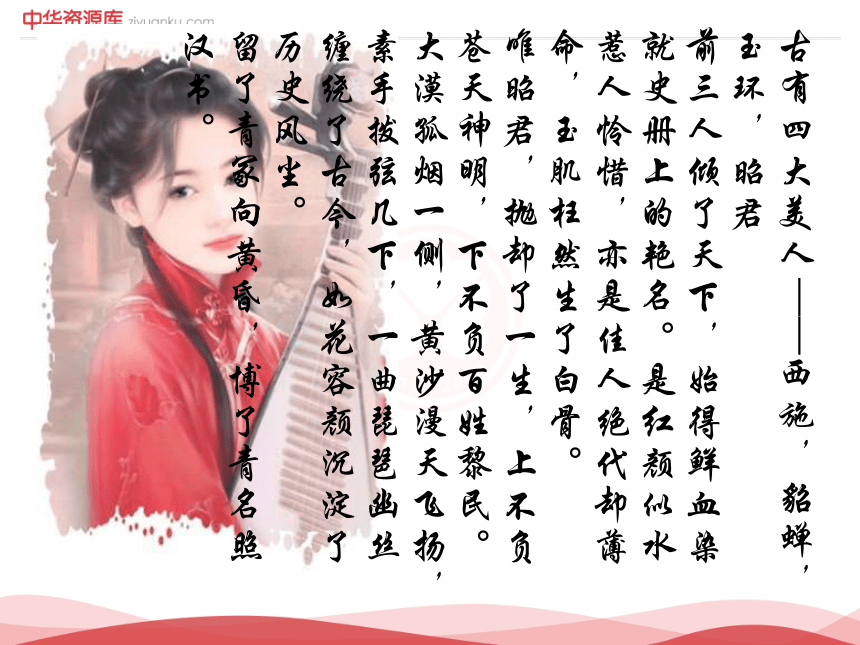 中华资源库 ziyuanku.com
古有四大美人——西施，貂蝉，
玉环，昭君
前三人倾了天下，始得鲜血染
就史册上的艳名。是红颜似水
惹人怜惜，亦是佳人绝代却薄
命，玉肌枉然生了白骨。
唯昭君，抛却了一生，上不负
苍天神明，下不负百姓黎民。
大漠孤烟一侧，黄沙漫天飞扬，
素手拔弦几下，一曲琵琶幽丝
缠绕了古今，如花容颜沉淀了
历史风尘。
留了青冢向黄昏，博了青名照
汉书。